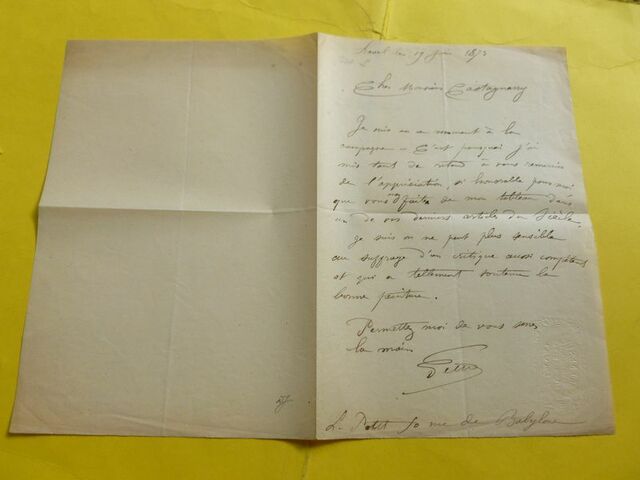 Laval le 19 Juin 1873
Cher Monsieur Castagnary
Je suis en ce moment à la
campagne — C'est pourquoi j'ai
mis tant de retard à vous remercier
de l'appréciation, si honorable pour moi
que vous avez faite de mon tableau dans
un de vos derniers articles du Siècle.
Je suis on ne peut plus sensible
au suffrage d'un critique aussi compétent
et qui a tellement soutenu la
bonne peinture.
Permettez moi de vous serrer
la main
L. Petit 50 rue de Babylone